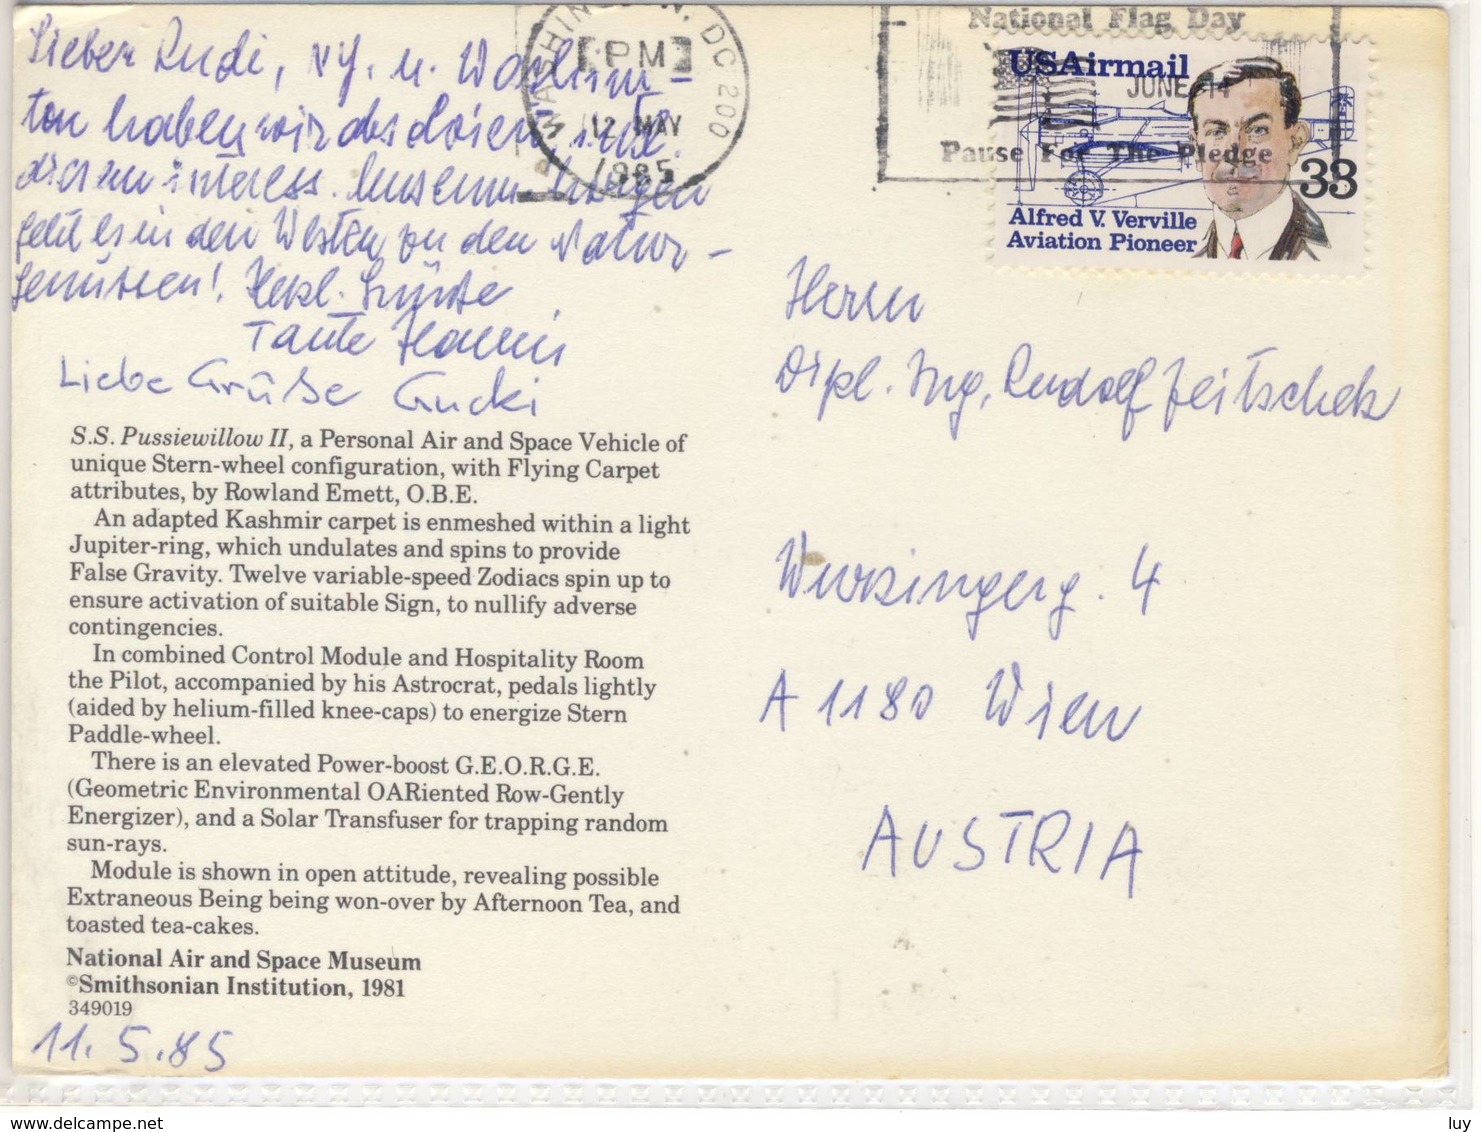 Lieber Rudi, NY. u. Washing-
ton haben wir absolviert, inkl.
interess.
geht es in den Westen zu den Natur-
genüssen! Herzl. Grüße
Tante Hanni
Liebe Grüße Gucki
S.S. Pussiewillow II, a Personal Air and Space Vehicle of
unique Stern-wheel configuration, with Flying Carpet
attributes, by Rowland Emett, O.B.E.
An adapted Kashmir carpet is enmeshed within a light
Jupiter-ring, which undulates and spins to provide
False Gravity. Twelve variable-speed Zodiacs spin up to
ensure activation of suitable Sign, to nullify adverse
contingencies.
In combined Control Module and Hospitality Room
the Pilot, accompanied by his Astrocrat, pedals lightly
(aided by helium-filled knee-caps) to energize Stern
Paddle-wheel.
There is an elevated Power-boost G.E.O.R.G.E.
(Geometric Environmental OARiented Row-Gently
Energizer), and a Solar Transfuser for trapping random
sun-rays.
Module is shown in open attitude, revealing possible
Extraneous Being being won-over by Afternoon Tea, and
toasted tea-cakes.
National Air and Space Museum
©Smithsonian Institution, 1981
349019
11.5.85
WASHINGTON, DC 200
PM
12 MAY
1985
National Flag Day
JUNE 14
Pause For The Pledge
USAirmail
33
Alfred V. Verville
Aviation Pioneer
Herrn
Dipl. Ing. Rudolf Zeitschek
Wurzingerg. 4
A 1180 Wien
AUSTRIA
www.delcampe.net
luy